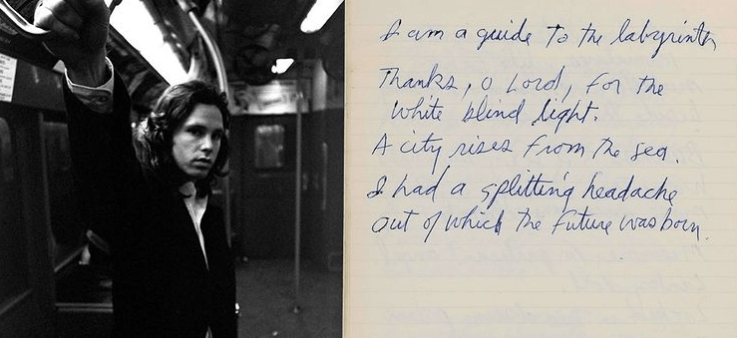 I am a guide to the labyrinth
Thanks, o Lord, for the
white blind light.
A city rises from the sea.
I had a splitting headache
out of which the future was born.